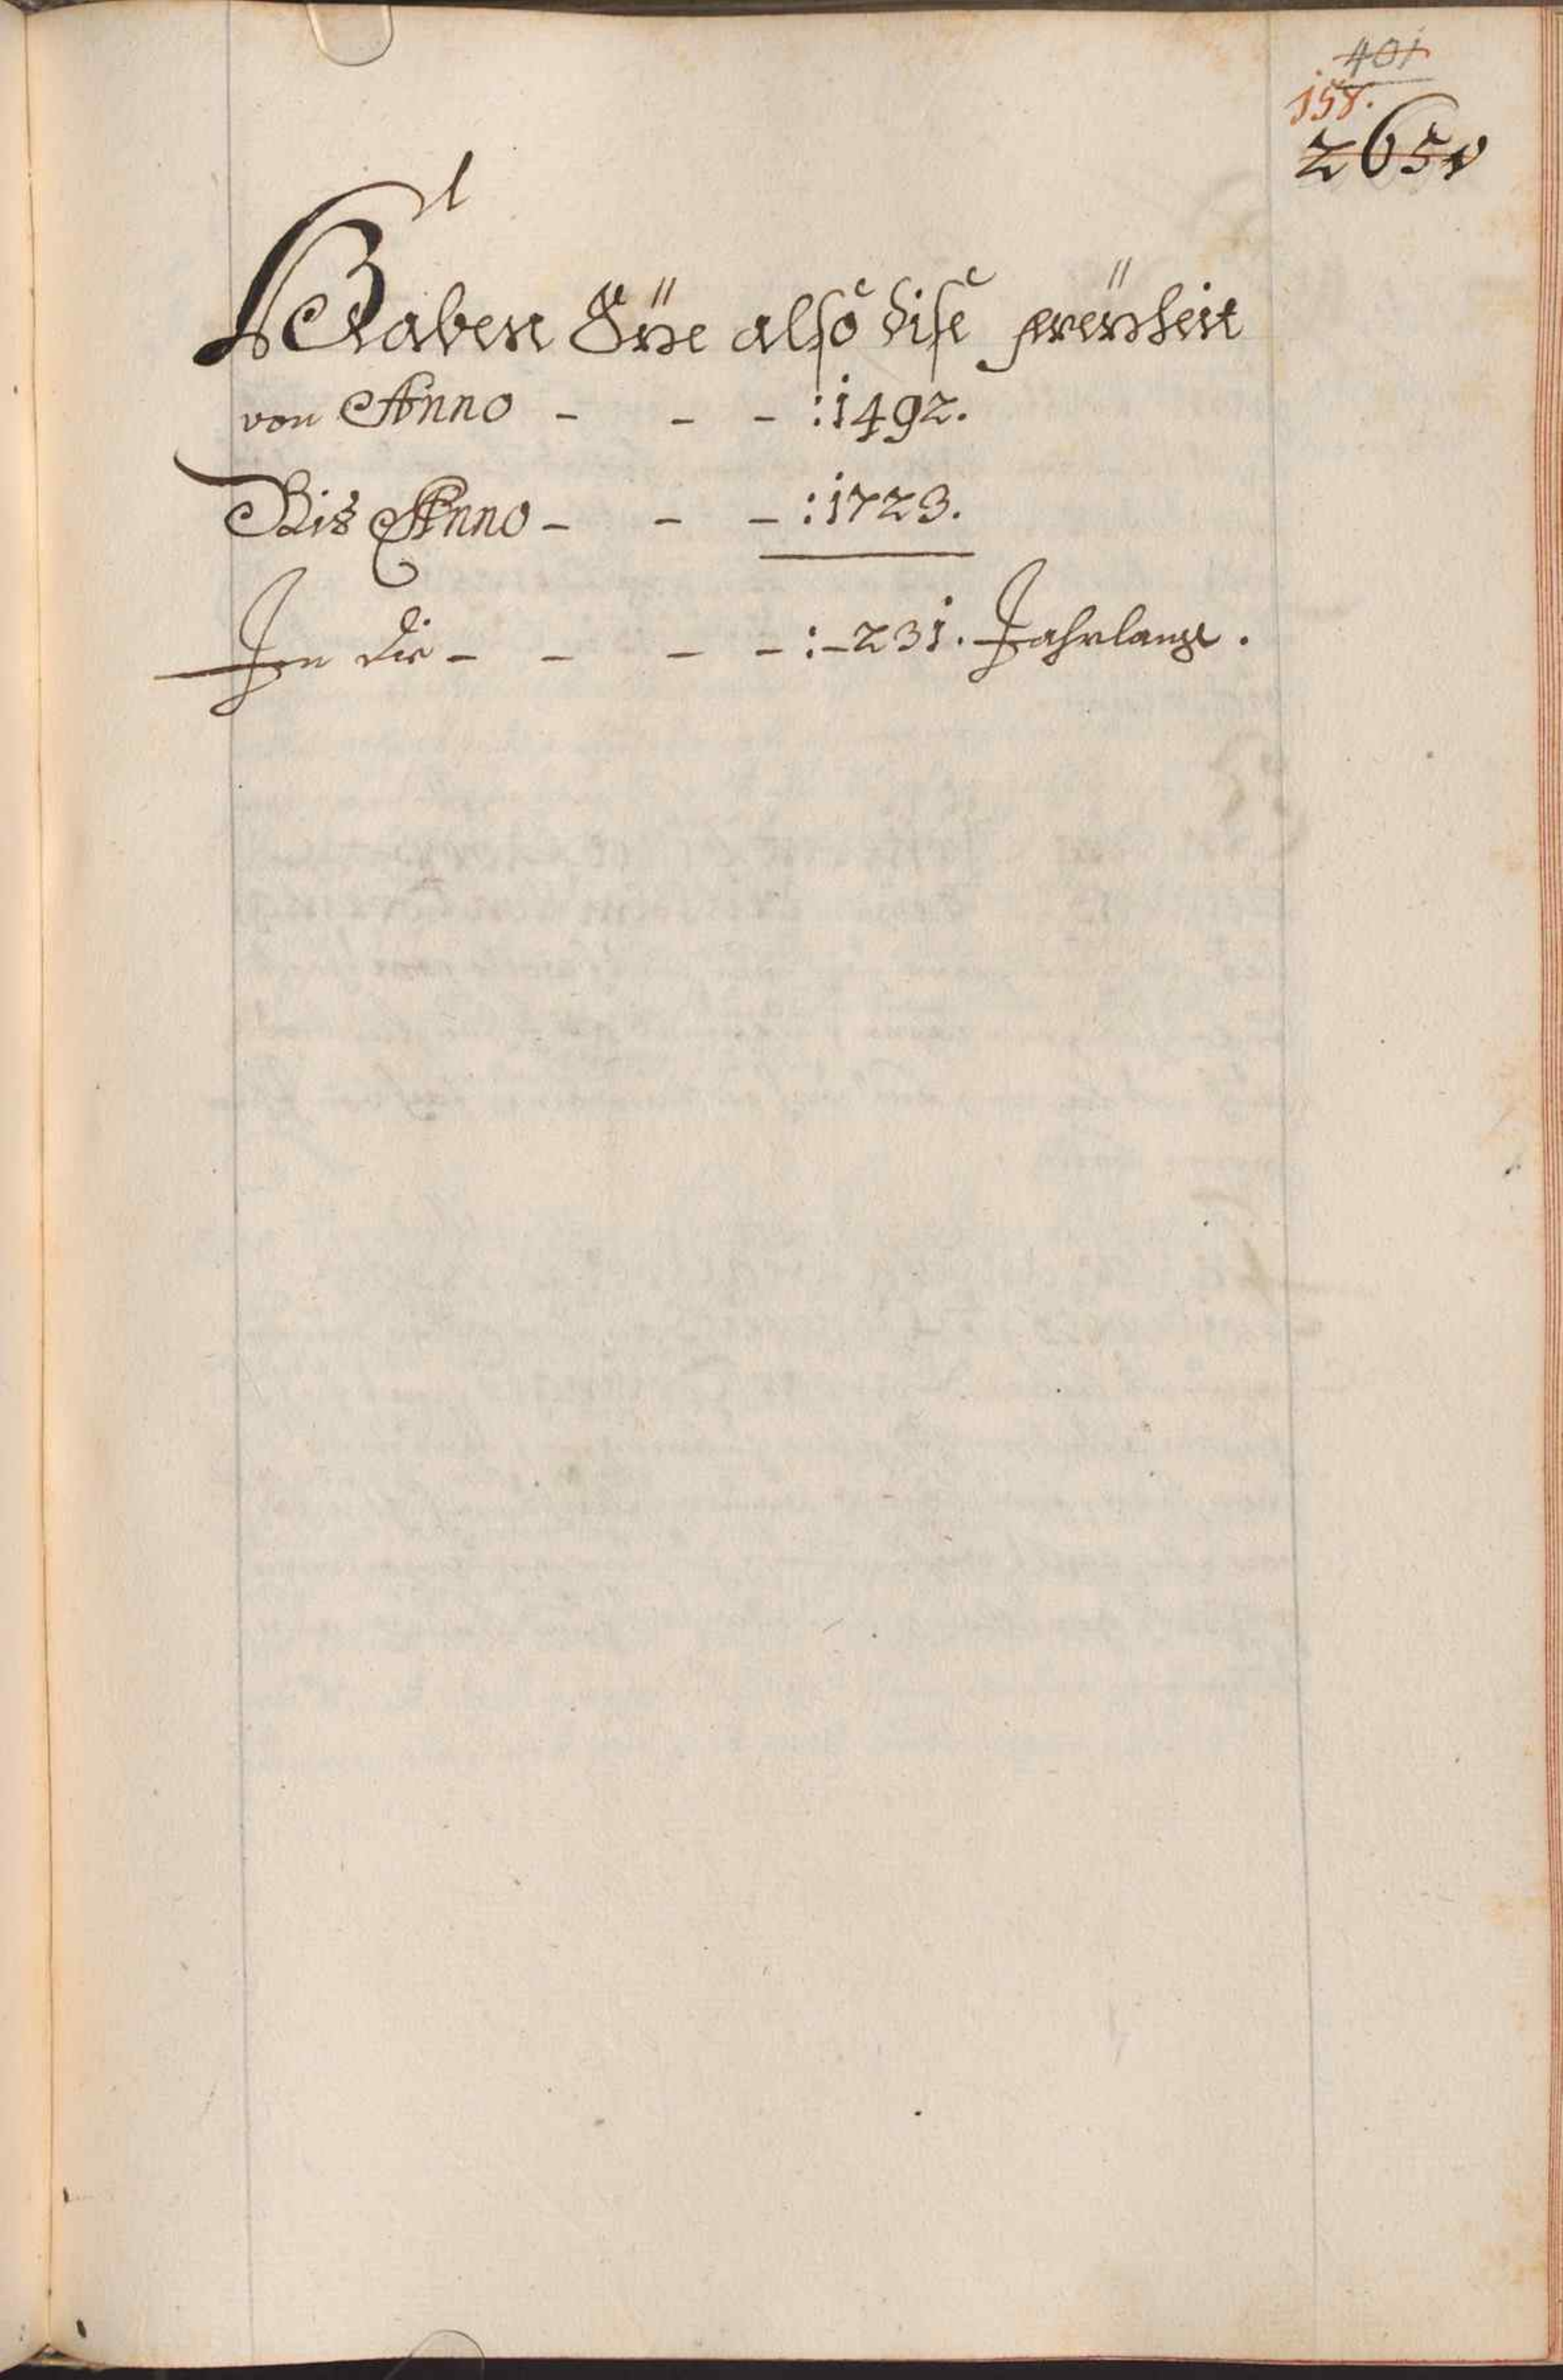 401
158.
265v
Haben Sÿe also dise freÿheit
von Anno - - - :1492.
Bis Anno - - - :1723.
In die - - - - :-231. Jahrlang.